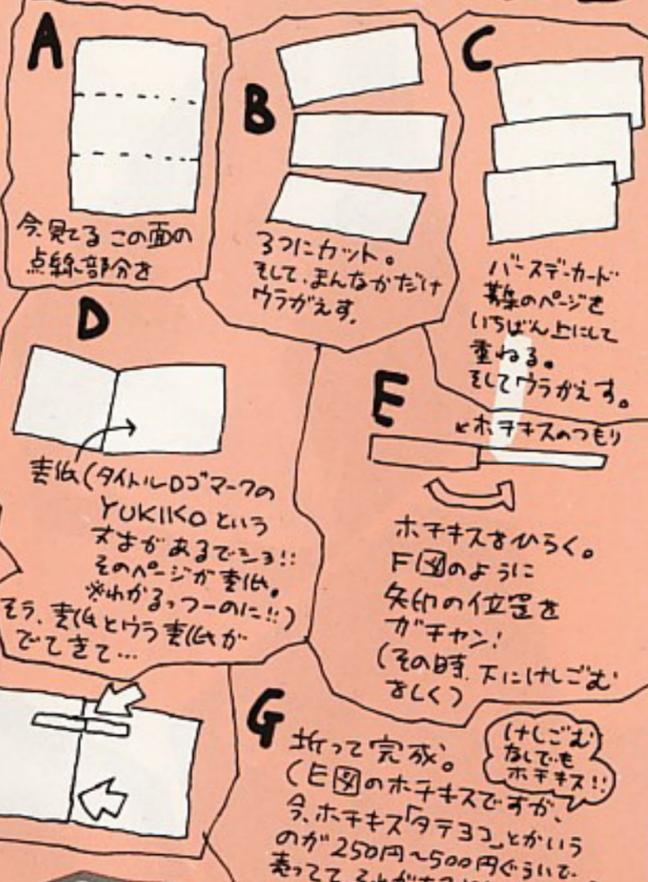 A
今、見てる この面の
点線部分を
B
3つにカット。
そして、まんなかだけ
ウラがえす。
C
バースデーカード
募集のページを
いちばん上にして
重ねる。
そしてウラがえす。
D
表紙(タイトルロゴマークの
YUKIIKOという
文字があるでショ!!
そのページが表紙。
※わかるっつーのに!!)
そう、表紙とウラ表紙が
でてきて…
E
←ホチキスのつもり
ホチキスをひらく。
F図のように
矢印の位置を
ガチャン!
(その時、下にけしごむ
をしく)
G
折って完成。
(E図のホチキスですが、
今、ホチキス「タテヨコ」とかいう
のが250円〜500円ぐらいで
売ってて
けしごむ
なしでも
ホチキス!!